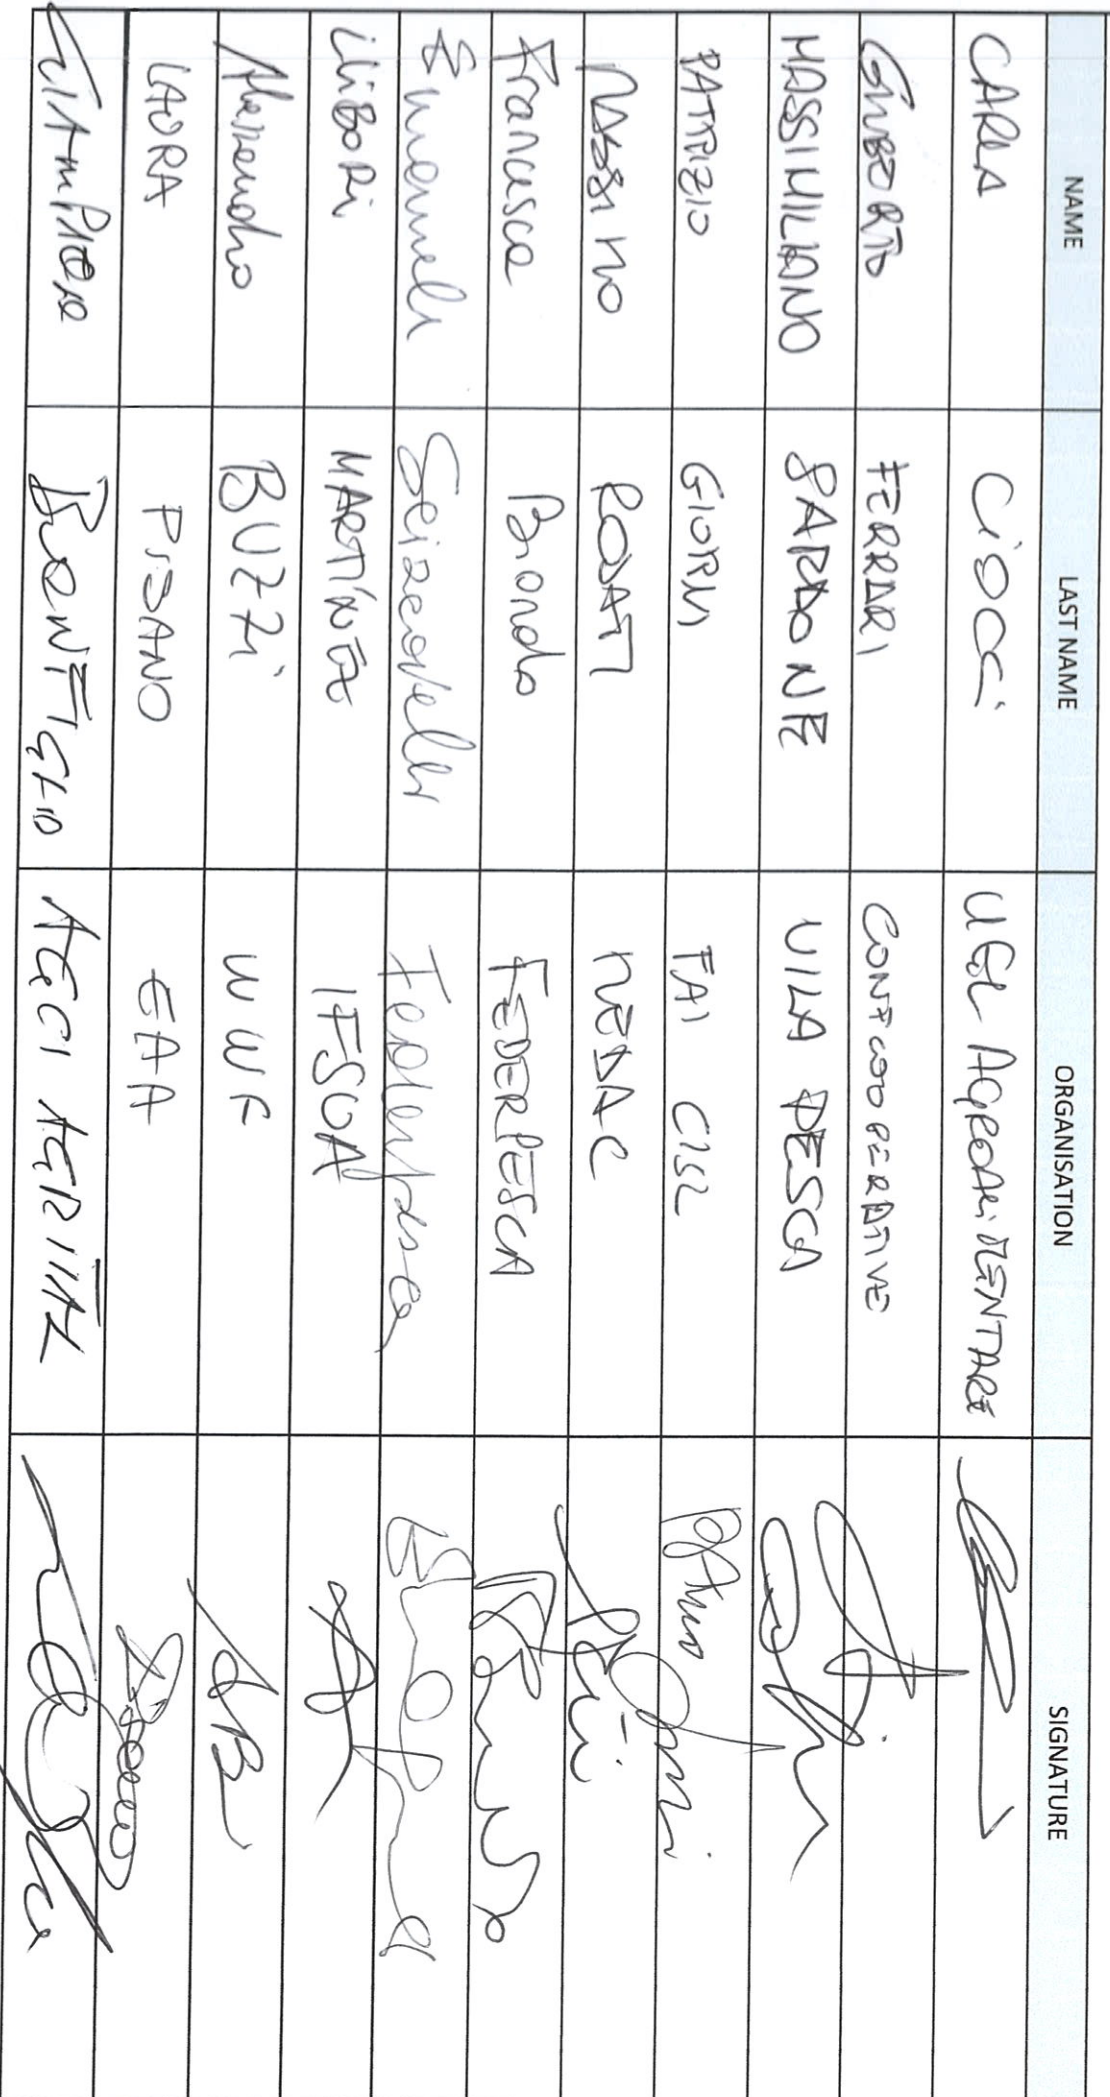 NAME LAST NAME ORGANISATION SIGNATURE
CARLA CiOCCi UGL AGROALiMENTARE
GILBERTO FERRARI CONFCOOPERATIVE
MASSIMILIANO SARDONE UILA PESCA
PATRIZIO GIORNI FAI CISL
MASSIMO ROSATI MEDAC
Francesca Biondo FEDERPESCA
Emanuele Sciacovelli Federpesca
LiBORi MARTÍNEZ IFSUA
Alessandro BUZZi WWF
LAURA PISANO EAA
GIAMPIERO AGCI AGRITAL